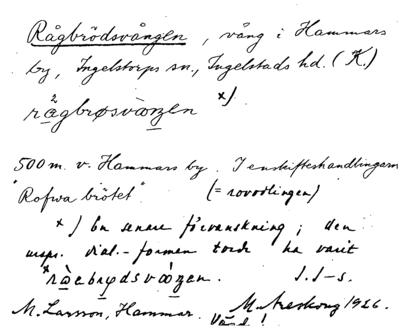 Rågbrödsvången, vång i Hammars
by, Ingelstorps sn., Ingelstads hd. (K.)
rågbrøsvàṉen x)
500 m. v. Hammars by. I enskifteshandlingarna
"Rofwa brötet" (= rovodlingen)
x) En senare förvanskning; den
urspr. dial.-formen torde ha varit
*ràebrydsvàṉen. I. I-s.
M. Larsson, Hammar. M. Areskoug 1926.